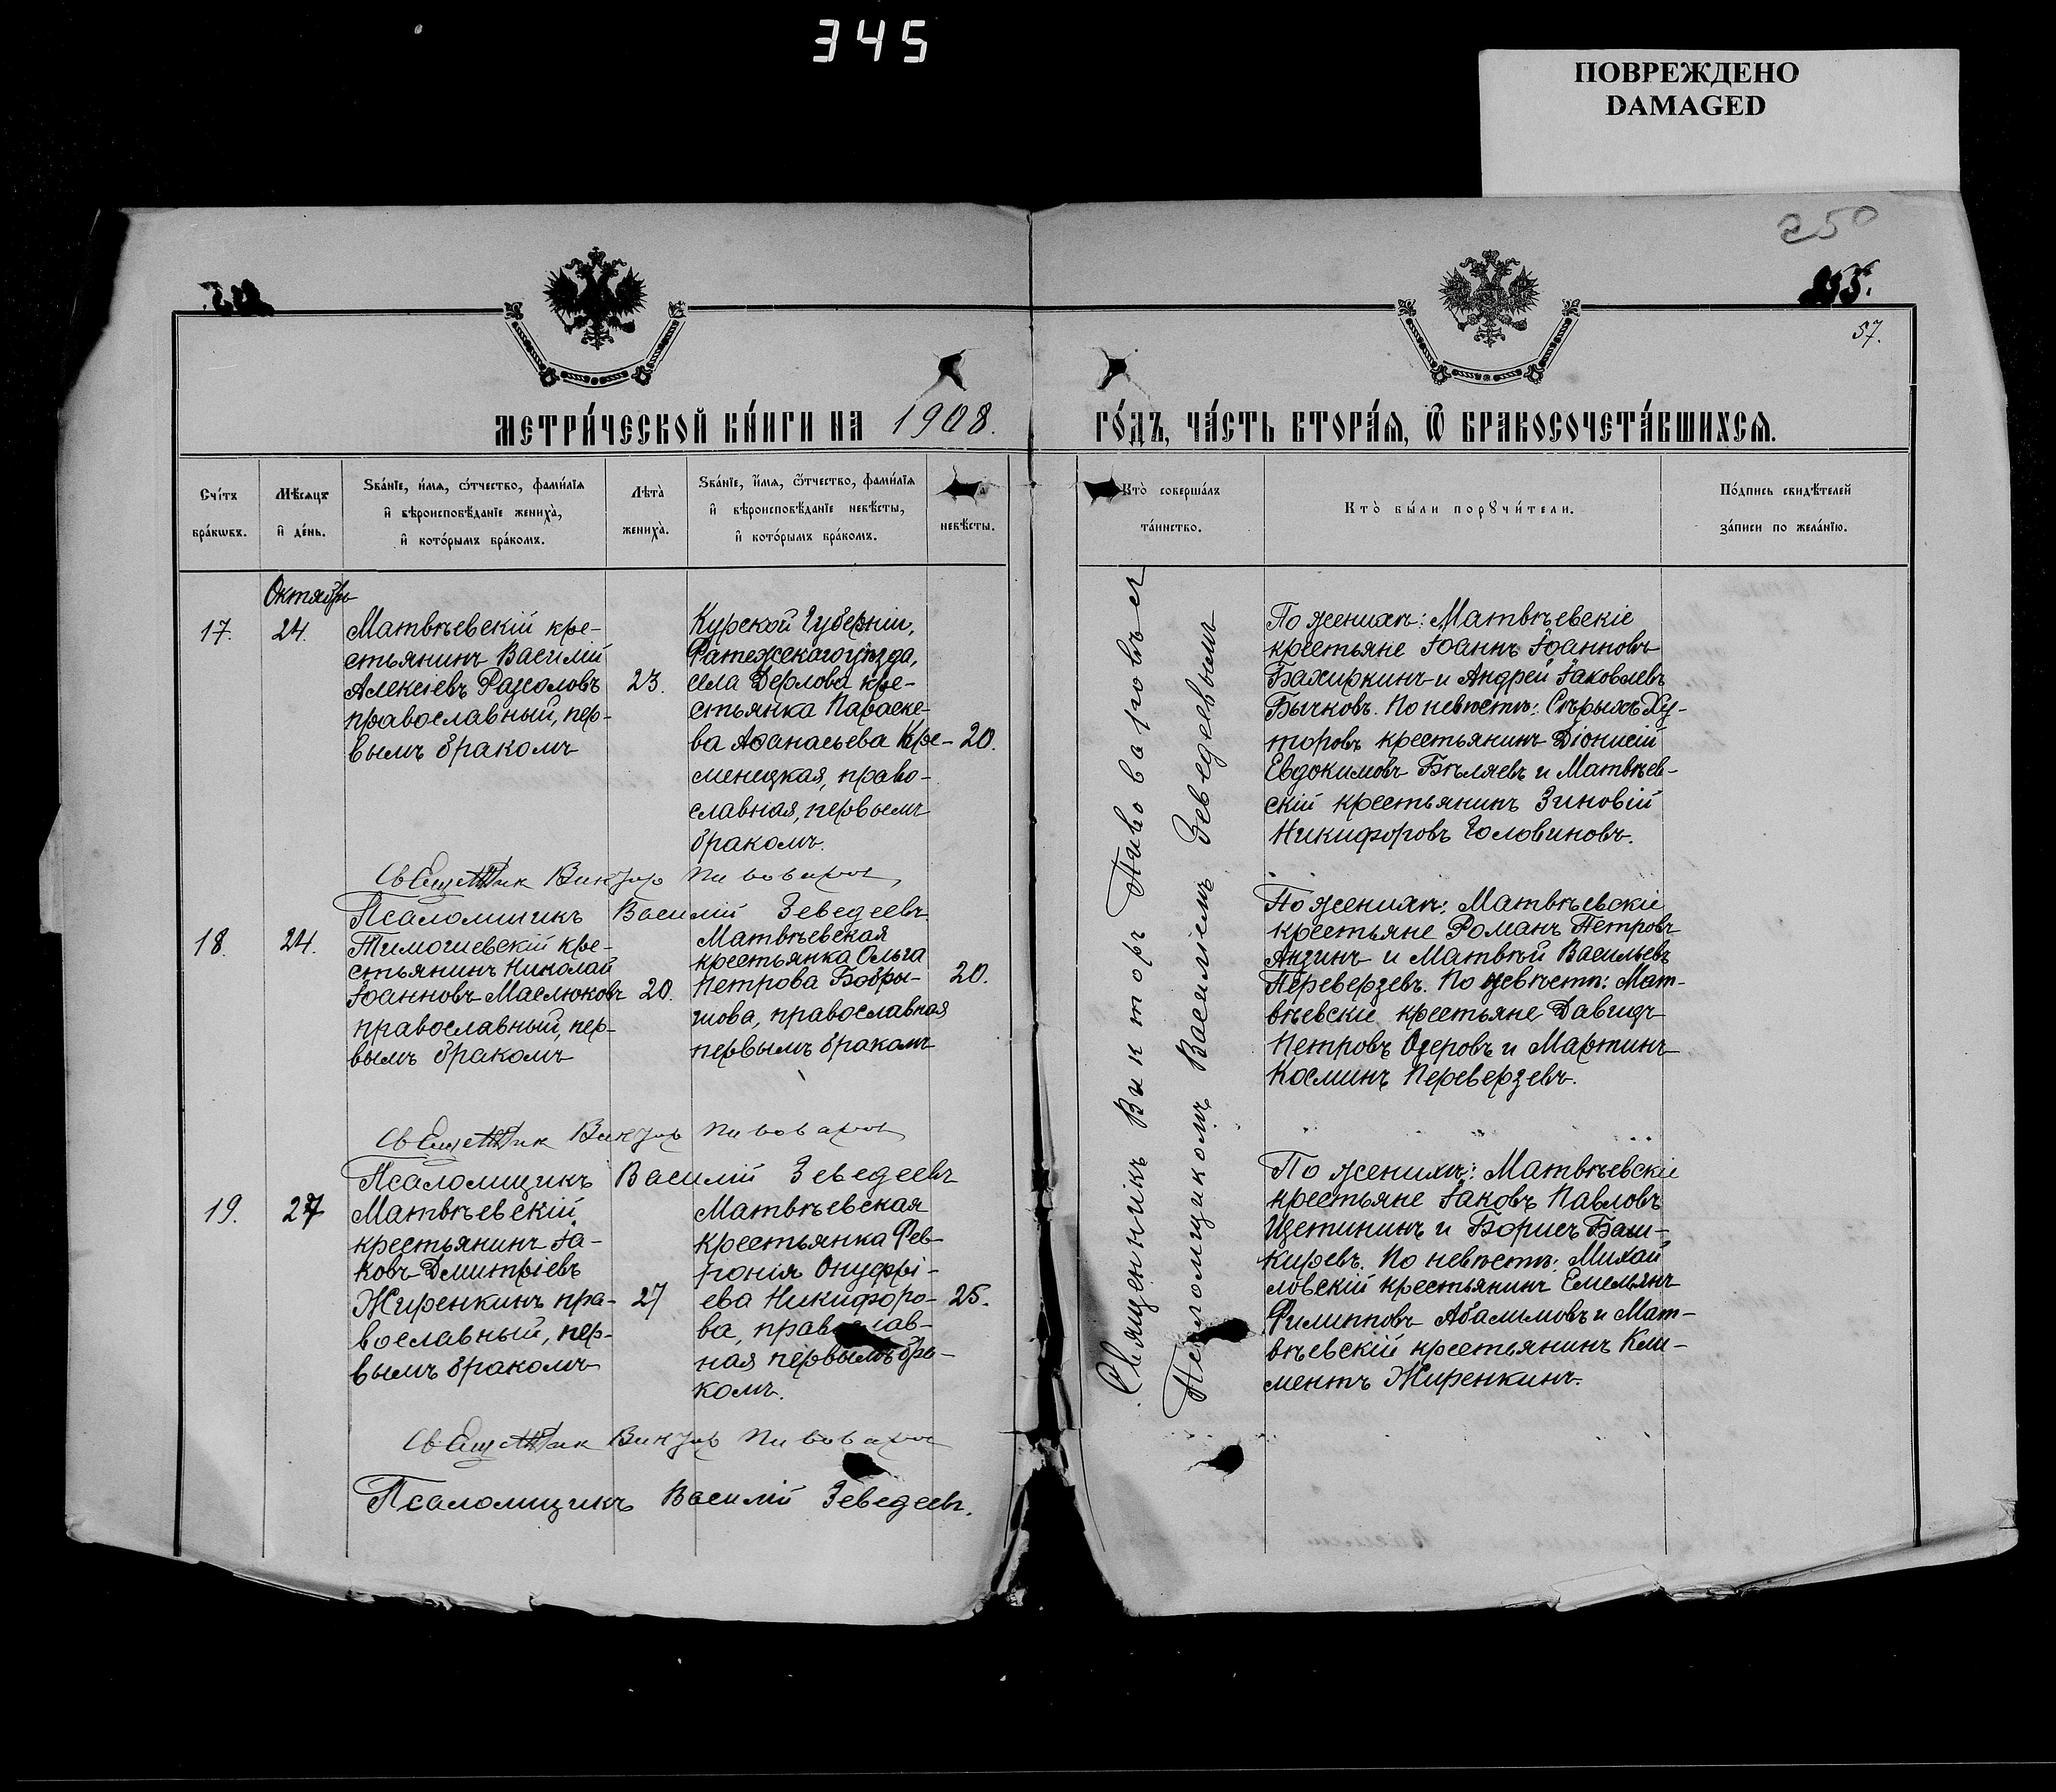 345
ПОВРЕЖДЕНО
DAMAGED
250
57.
МЕТРИ́ЧЕСКОЙ КНИ́ГИ НА 1908. ГО́ДЪ, ЧА́СТЬ ВТОРА́Я, Ѿ БРАКОСОЧЕТА́ВШИХСЯ.
Сче́тъ
бра́кѡвъ.
Мѣ́сяцъ
и҆ де́нь.
Ѕва́нїе, и҆́мя, ѻ҆́тчество, фами́лїя
и҆ вѣроисповѣ́данїе жениха̀,
и҆ кото́рымъ бра́комъ.
Лѣ́та
жениха̀.
Ѕва́нїе, и҆́мя, ѻ҆́тчество, фами́лїя
и҆ вѣроисповѣ́данїе невѣ́сты,
и҆ кото́рымъ бра́комъ.
невѣ́сты.
Кто̀ соверша́лъ
та́инство.
Кто̀ бы́ли порꙋчи́тели.
По́дпись свидѣ́телей
за́писи по жела́нїю.
Октябрь
17.
24.
Матвѣевскій кре-
стьянинъ Василій
Алексіевъ Разсоловъ
православный, пер-
вымъ бракомъ
23.
Курской Губерніи,
Фатежскаго уѣзда,
села Дерлова кре-
стьянка Параске-
ва Аѳанасьева Кре-
менецкая, право-
славная, первымъ
бракомъ.
20.
По женихѣ: Матвѣевскіе
крестьяне Іоаннъ Іоанновъ
Бахиркинъ и Андрей Іаковлевъ
Бычковъ. По невѣстѣ: Сѣрыхъ Ху-
торовъ крестьянинъ Діонисій
Евдокимовъ Бѣляевъ и Матвѣев-
скій крестьянинъ Зиновій
Никифоровъ Головиновъ.
Священникъ Викторъ Пивоваровъ
Псаломщикъ Василій Зеведеевъ
18.
24.
Тимошевскій кре-
стьянинъ Николай
Іоанновъ Маслюковъ
православный, пер-
вымъ бракомъ
20.
Матвѣевская
крестьянка Ольга
Петрова Бобры-
шова, православная
первымъ бракомъ
20.
По женихѣ: Матвѣевскіе
крестьяне Романъ Петровъ
Анзинъ и Матвѣй Васильевъ
Переверзевъ. По невѣстѣ: Мат-
вѣевскіе крестьяне Давидъ
Петровъ Озеровъ и Мартинъ
Косминъ Переверзевъ.
Священникъ Викторъ Пивоваровъ
Псаломщикъ Василій Зеведеевъ
19.
27
Матвѣевскій
крестьянинъ Іа-
ковъ Дмитріевъ
Жиренкинъ пра-
вославный, пер-
вымъ бракомъ
27
Матвѣевская
крестьянка Фев-
ронія Онуфрі-
ева Никифоро-
ва, православ-
ная первымъ бра-
комъ.
25.
По женихѣ: Матвѣевскіе
крестьяне Іаковъ Павловъ
Щетининъ и Борисъ Баш-
киревъ. По невѣстѣ: Михай
ловскій крестьянинъ Емельянъ
Филипповъ Абалымовъ и Мат-
вѣевскій крестьянинъ Кли-
ментъ Жиренкинъ.
Священникъ Викторъ Пивоваровъ
Псаломщикъ Василій Зеведеевъ.
Священникъ Викторъ Пивоваровъ съ
Псаломщикомъ Василіемъ Зеведеевымъ